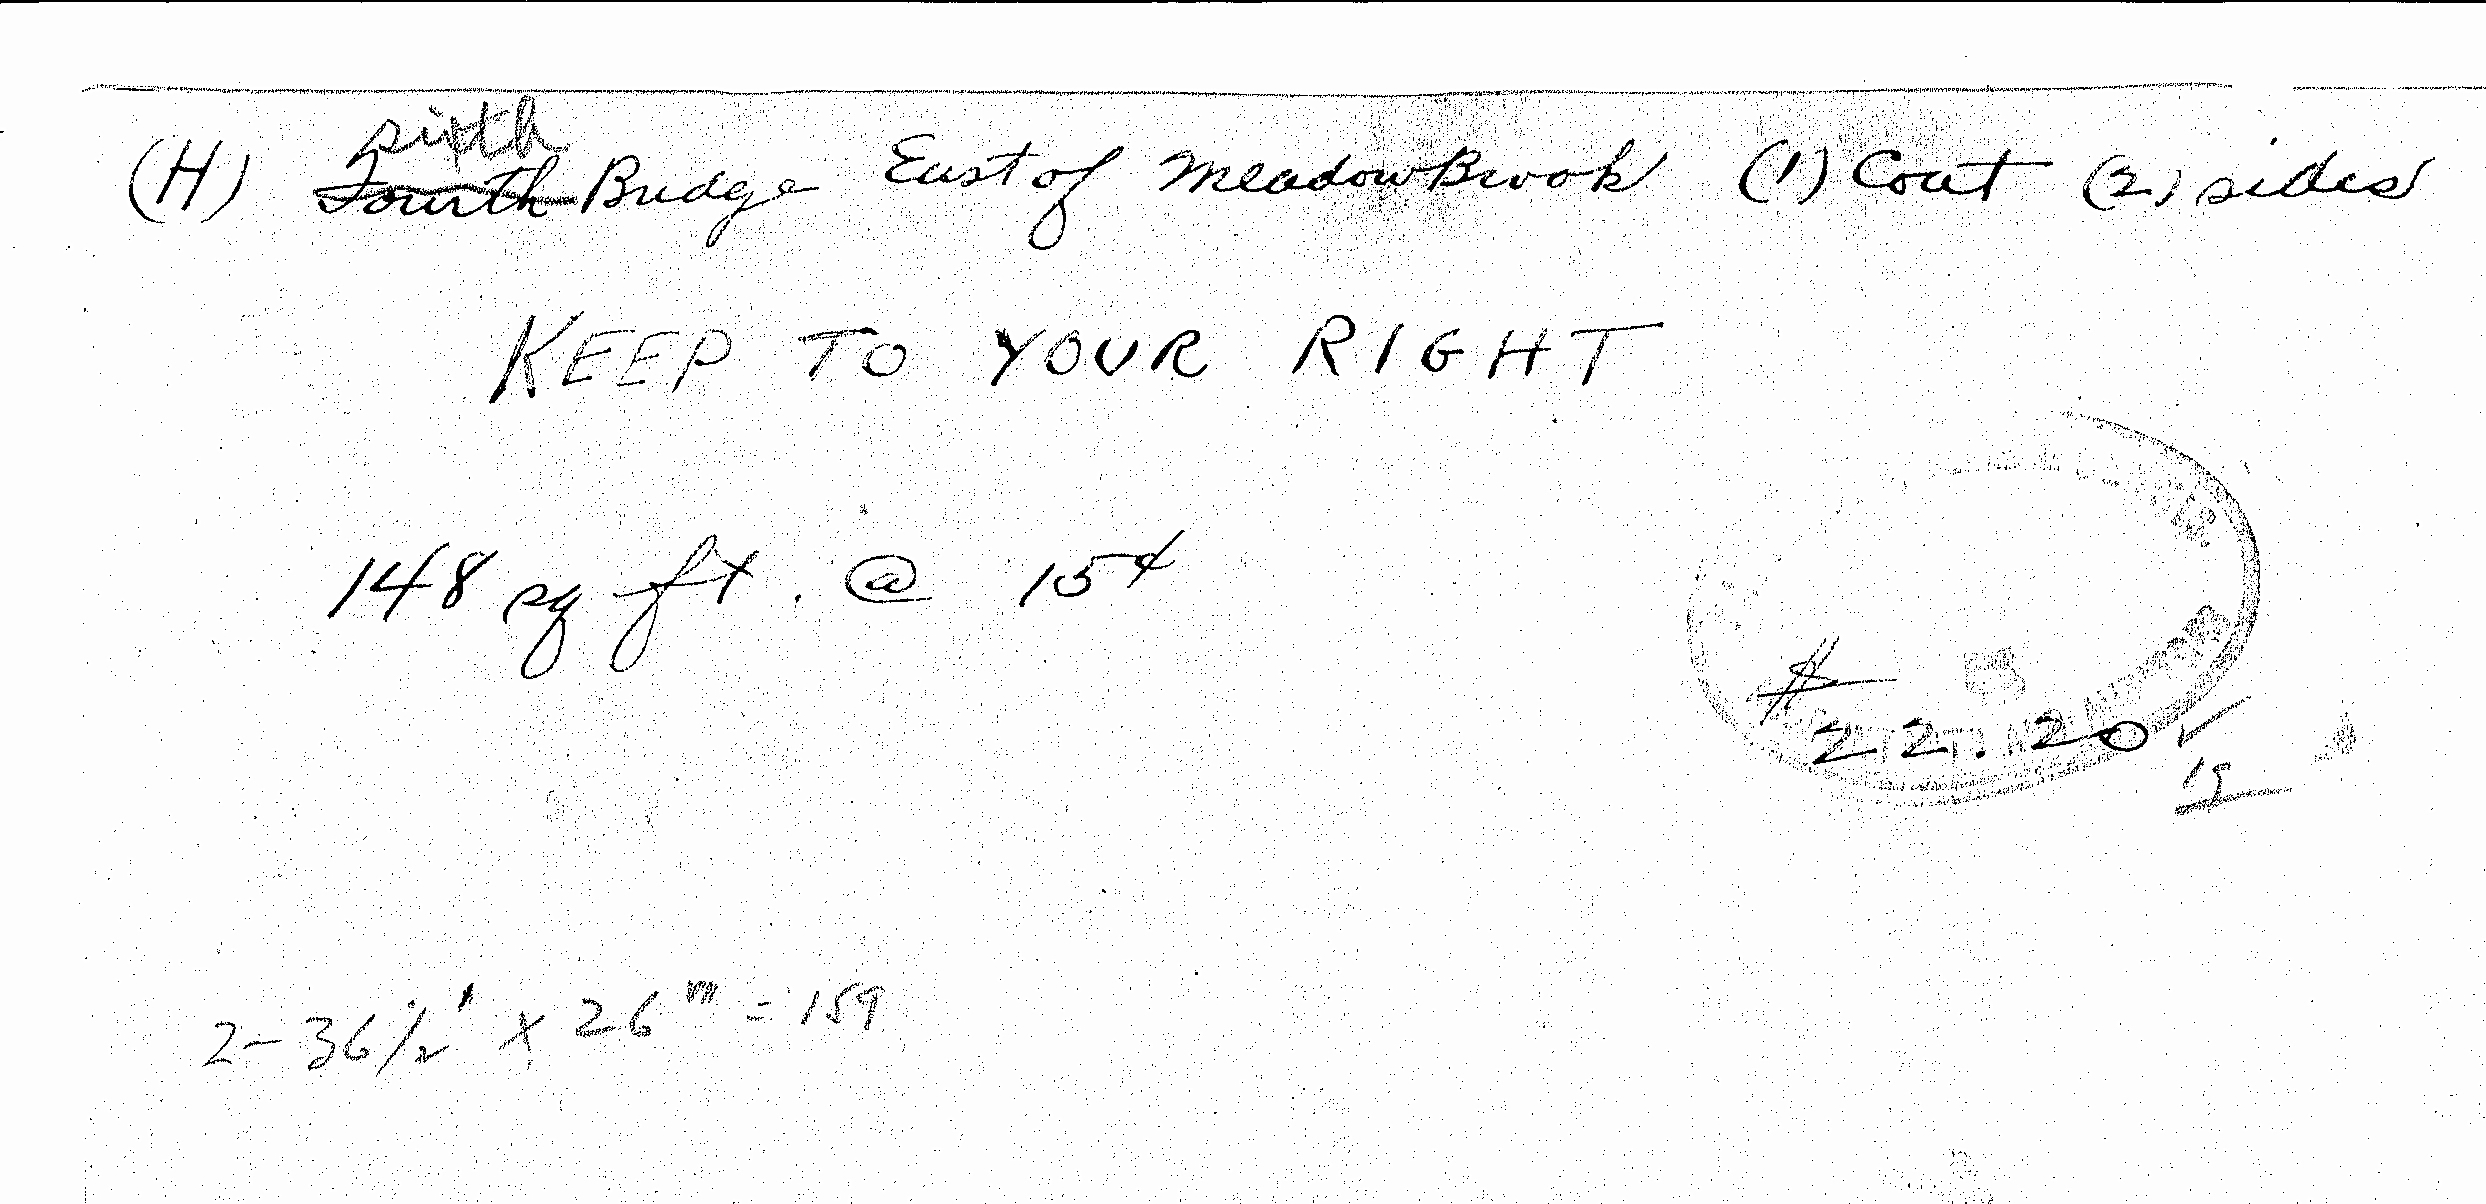 (H) sixth Fourth Bridge East of MeadowBrook (1) Coat (2) sides
KEEP TO YOUR RIGHT
148 sq ft. @ 15¢
$ 22.20 ✓
2-36½' x 26"" = 159